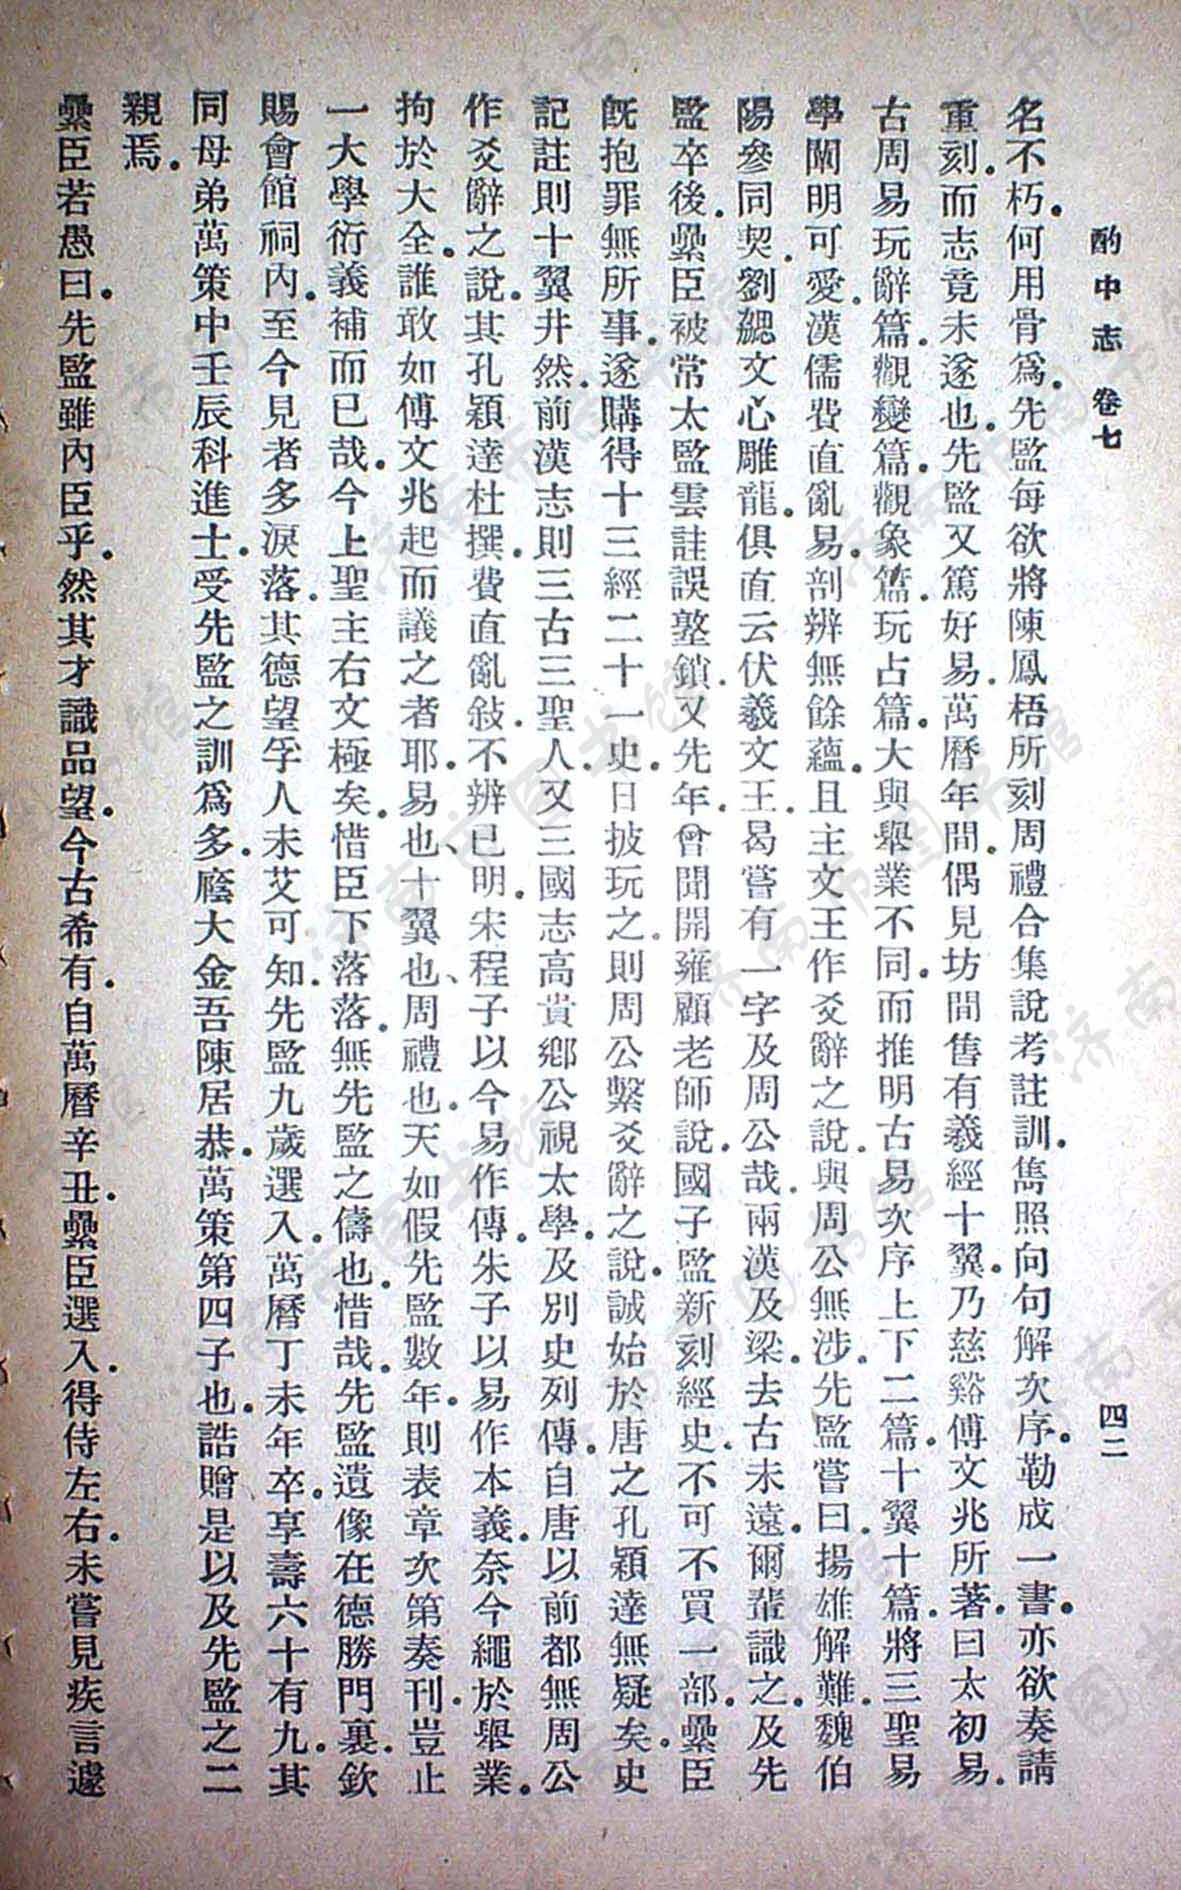 酌中志 卷七 四二
名不朽。何用骨爲。先監每欲將陳鳳梧所刻周禮合集說考註訓。雋照向句解次序。勒成一書。亦欲奏請
重刻。而志竟未遂也。先監又篤好易。萬曆年間。偶見坊間售有羲經十翼。乃慈谿傅文兆所著。曰太初易。
古周易玩辭篇。觀變篇。觀象篇。玩占篇。大與舉業不同。而推明古易次序上下二篇。十翼十篇。將三聖易
學闡明可愛。漢儒費直亂易。剖辨無餘蘊。且主文王作爻辭之說。與周公無涉。先監嘗曰。揚雄解難。魏伯
陽參同契。劉勰文心雕龍。俱直云伏羲文王。曷嘗有一字及周公哉。兩漢及梁。去古未遠。爾輩識之。及先
監卒後。纍臣被常太監雲註誤鏊鎖。又先年。曾聞開雍顧老師說。國子監新刻經史。不可不買一部。纍臣
旣抱罪無所事。遂購得十三經二十一史。日披玩之。則周公繫爻辭之說。誠始於唐之孔穎達無疑矣。史
記註則十翼井然。前漢志則三古三聖人。又三國志高貴鄉公視太學。及別史列傳。自唐以前都無周公
作爻辭之說。其孔穎達杜撰。費直亂敍。不辨已明。宋程子以今易作傳。朱子以易作本義。奈今繩於舉業。
拘於大全。誰敢如傅文兆起而議之者耶。易也、十翼也、周禮也。天如假先監數年。則表章次第奏刊。豈止
一大學衍義補而已哉。今上聖主右文極矣。惜臣下落落。無先監之儔也。惜哉。先監遺像在德勝門裏。欽
賜會館祠內。至今見者多淚落。其德望孚人未艾可知。先監九歲選入。萬曆丁未年卒。享壽六十有九。其
同母弟萬策中壬辰科進士。受先監之訓爲多。廕大金吾陳居恭。萬策第四子也。誥贈是以及先監之二
親焉。
纍臣若愚曰。先監雖內臣乎。然其才識品望。今古希有。自萬曆辛丑。纍臣選入。得侍左右。未嘗見疾言遽